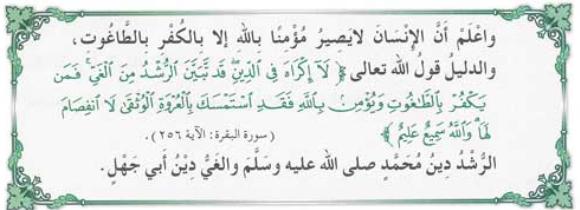 واعْلَمْ أَنَّ الإِنْسَانَ لايَصِيرُ مُؤْمِنًا بالله إلا بِالكُفْرِ بِالطَّاغُوتِ،
والدليلُ قولُ الله تعالى ﴿ لَآ إِكْرَاهَ فِي الدِّينِ ۖ قَد تَّبَيَّنَ الرُّشْدُ مِنَ الْغَيِّ ۚ فَمَن
يَكْفُرْ بِالطَّٰغُوتِ وَيُؤْمِنۢ بِاللَّهِ فَقَدِ اسْتَمْسَكَ بِالْعُرْوَةِ الْوُثْقَىٰ لَا انفِصَامَ
لَهَا ۗ وَاللَّهُ سَمِيعٌ عَلِيمٌ ﴾ (سورة البقرة: الآية ٢٥٦).
الرُّشْدُ دِينُ مُحَمَّدٍ صلى الله عليه وسَلَّمَ والغَيُّ دِيْنُ أبي جَهْلٍ.